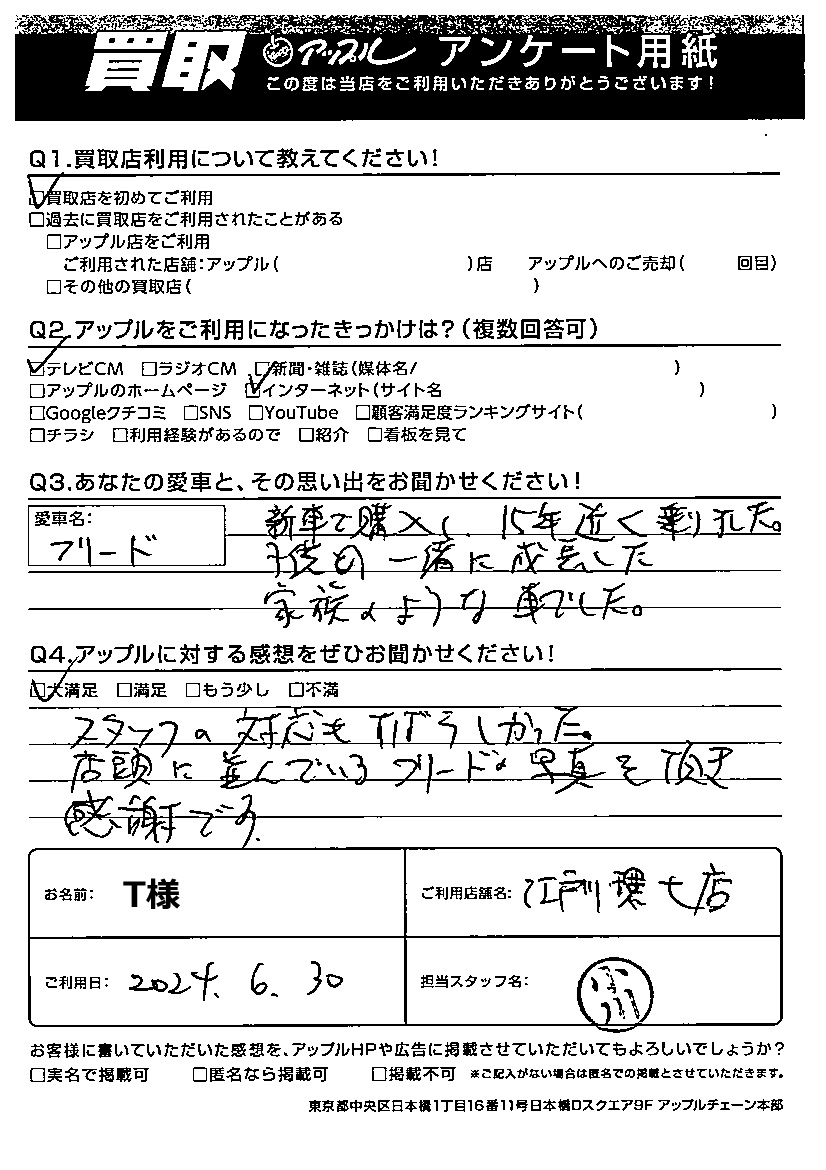 買取 アップル アンケート用紙
この度は当店をご利用いただきありがとうございます!
Q1.買取店利用について教えてください!
☑買取店を初めてご利用
□過去に買取店をご利用されたことがある
□アップル店をご利用
ご利用された店舗:アップル( )店 アップルへのご売却( 回目)
□その他の買取店( )
Q2.アップルをご利用になったきっかけは?(複数回答可)
☑テレビCM □ラジオCM □新聞・雑誌(媒体名/ )
□アップルのホームページ ☑インターネット(サイト名 )
□Googleクチコミ □SNS □YouTube □顧客満足度ランキングサイト( )
□チラシ □利用経験があるので □紹介 □看板を見て
Q3.あなたの愛車と、その思い出をお聞かせください!
愛車名:
フリード
新車で購入し、15年近く乗りました。
子供も一緒に成長した
家族のような車でした。
Q4.アップルに対する感想をぜひお聞かせください!
☑大満足 □満足 □もう少し □不満
スタッフの対応もすばらしかった。
店頭に並んでいるフリードの写真を頂き
感謝です。
お名前: T様 ご利用店舗名: 江戸川環七店
ご利用日: 2024. 6. 30 担当スタッフ名: 小川
お客様に書いていただいた感想を、アップルHPや広告に掲載させていただいてもよろしいでしょうか?
□実名で掲載可 □匿名なら掲載可 □掲載不可 ※ご記入がない場合は匿名での掲載とさせていただきます。
東京都中央区日本橋1丁目16番11号日本橋Dスクエア9F アップルチェーン本部